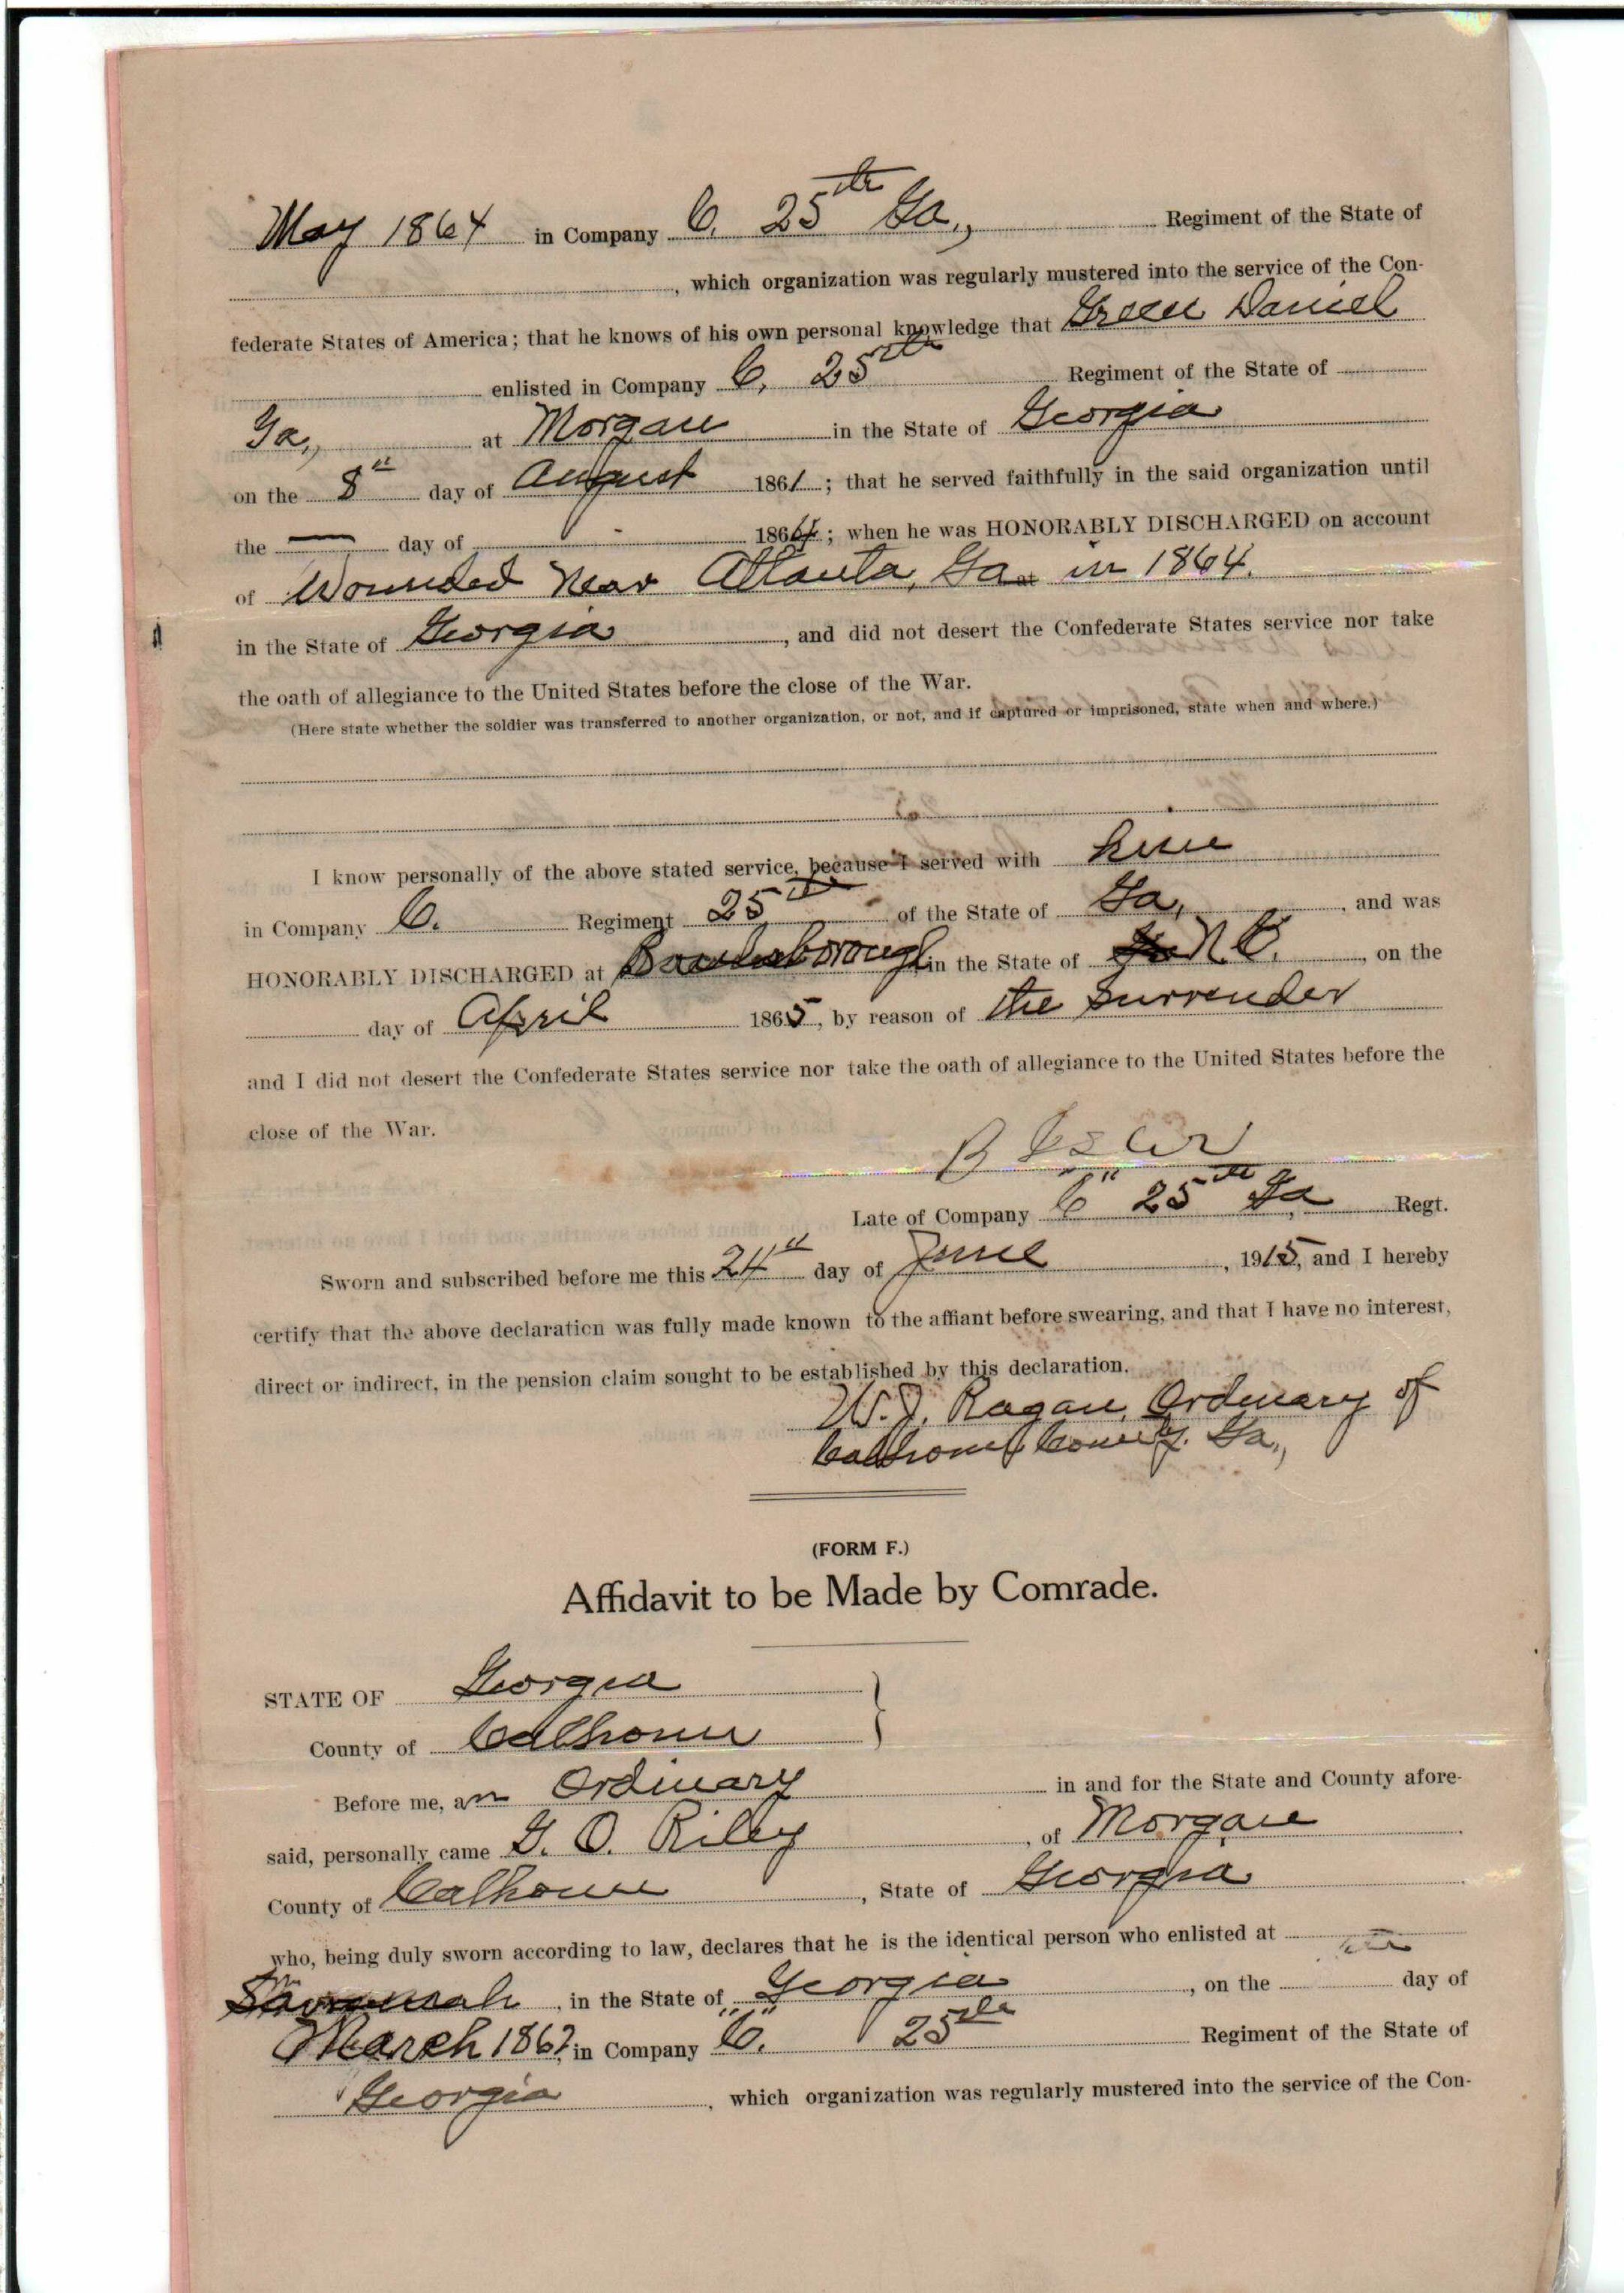 May 1864 in Company C. 25th Ga., Regiment of the State of
, which organization was regularly mustered into the service of the Con-
federate States of America; that he knows of his own personal knowledge that Green Daniel
enlisted in Company C, 25th Regiment of the State of
Ga., at Morgan in the State of Georgia
on the 8" day of August 1861; that he served faithfully in the said organization until
the — day of - 1864; when he was HONORABLY DISCHARGED on account
of Wounded Near Atlanta, Ga at in 1864.
in the State of Georgia, and did not desert the Confederate States service nor take
the oath of allegiance to the United States before the close of the War.
(Here state whether the soldier was transferred to another organization, or not, and if captured or imprisoned, state when and where.)
I know personally of the above stated service, because I served with him
in Company C. Regiment 25th of the State of Ga, and was
HONORABLY DISCHARGED at in the State of N C., on the
day of April 1865, by reason of the surrender
and I did not desert the Confederate States service nor take the oath of allegiance to the United States before the
close of the War.
Late of Company "C" 25th Ga, Regt.
Sworn and subscribed before me this 24" day of June, 1915, and I hereby
certify that the above declaration was fully made known to the affiant before swearing, and that I have no interest,
direct or indirect, in the pension claim sought to be established by this declaration.
W. J. Ragan, Ordinary of
Calhoun County. Ga.,
(FORM F.)
Affidavit to be Made by Comrade.
STATE OF Georgia
County of Calhoun
Before me, an Ordinary in and for the State and County afore-
said, personally came G. O. Riley, of Morgan
County of Calhoun, State of Georgia
who, being duly sworn according to law, declares that he is the identical person who enlisted at
Savannah, in the State of Georgia, on the day of
March 1862, in Company "C." 25th Regiment of the State of
Georgia, which organization was regularly mustered into the service of the Con-